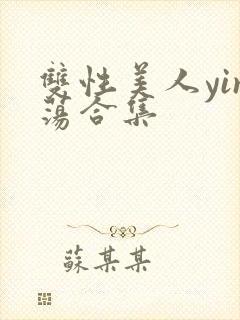 雙性美人yin
蕩合集
蘇某某